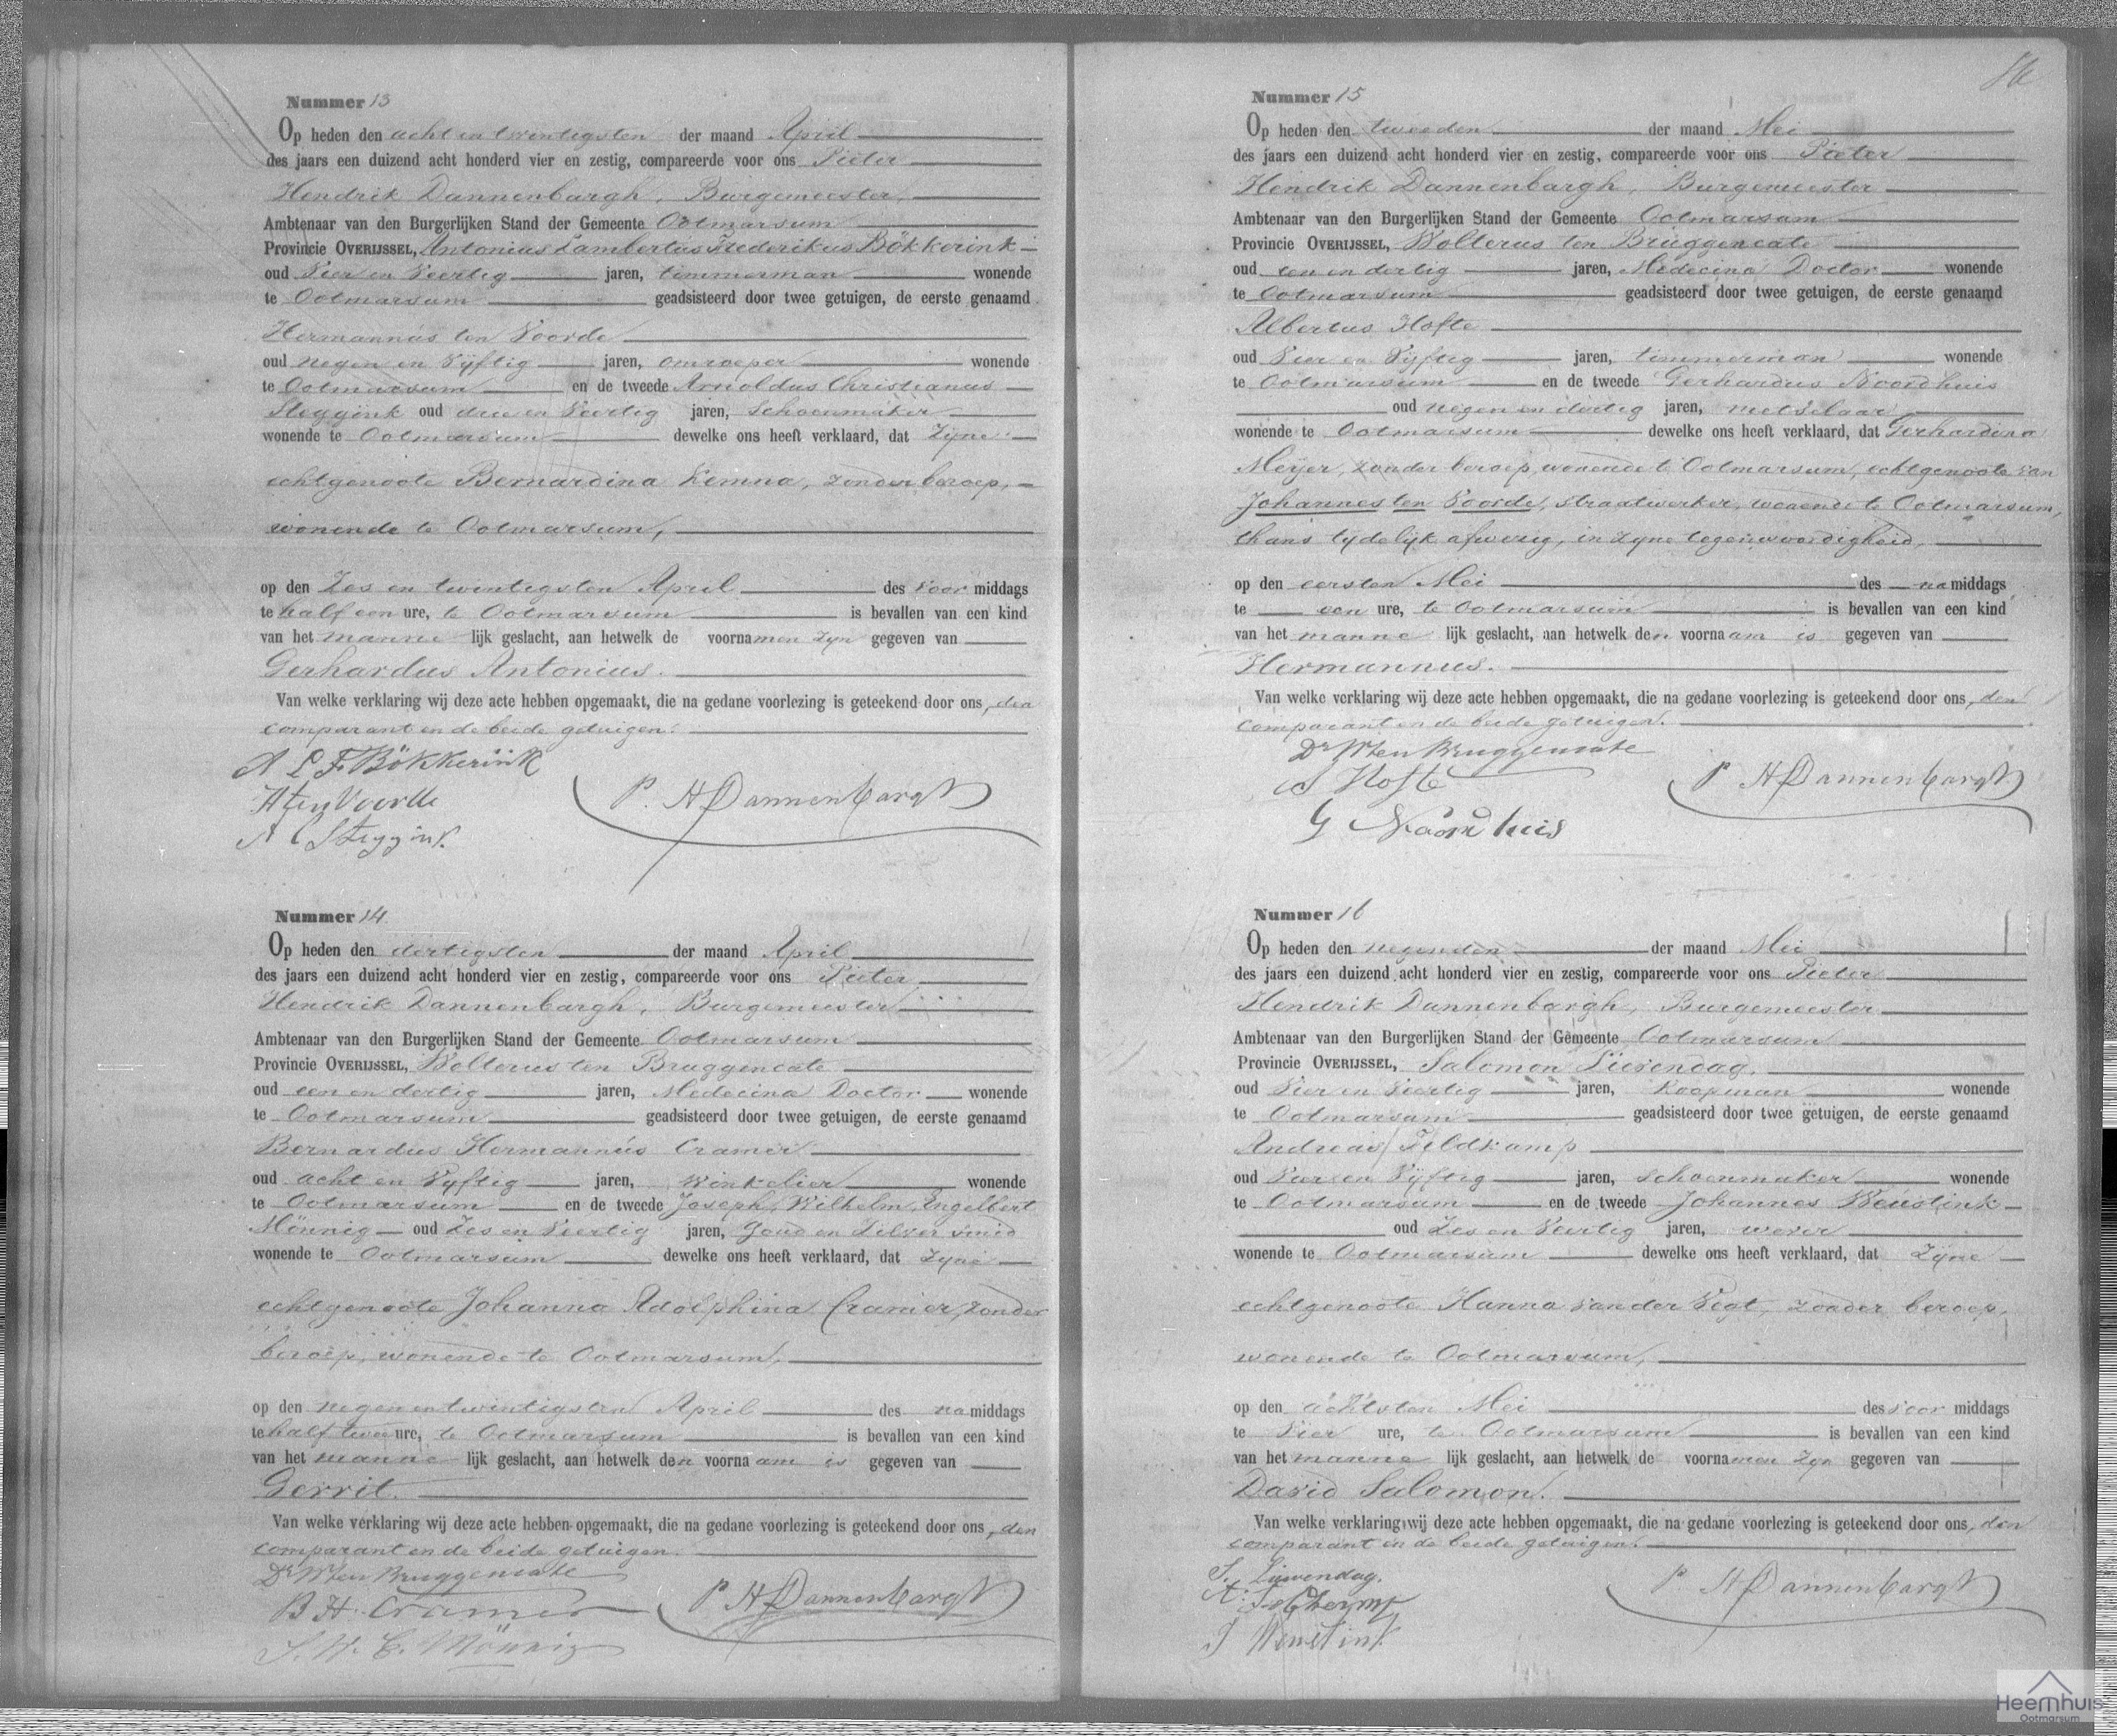 Nummer 13
Op heden den acht en twintigsten der maand April
des jaars een duizend acht honderd vier en zestig, compareerde voor ons Pieter
Hendrik Dannenbargh, Burgemeester,
Ambtenaar van den Burgerlijken Stand der Gemeente Ootmarsum
Provincie OVERIJSSEL, Antonius Lambertus Frederikus Bökkerink
oud Vier en Veertig jaren, timmerman wonende
te Ootmarsum geadsisteerd door twee getuigen, de eerste genaamd
Hermannus ten Voorde
oud negen en Vijftig jaren, omroeper wonende
te Ootmarsum en de tweede Arnoldus Christianus
Steggink oud drie en Veertig jaren, Schoenmaker
wonende te Ootmarsum dewelke ons heeft verklaard, dat Zijne
echtgenoote Bernardina Kemna, zonder beroep,
wonende te Ootmarsum,
op den Zes en twintigsten April des voor middags
te half een ure, te Ootmarsum is bevallen van een kind
van het manne lijk geslacht, aan hetwelk de voornamen zijn gegeven van
Gerhardus Antonius.
Van welke verklaring wij deze acte hebben opgemaakt, die na gedane voorlezing is geteekend door ons, den
comparant en de beide getuigen.
A L F Bökkerink
H ten Voorde
P. H Dannenbargh
A C Steggink.
Nummer 14
Op heden den dertigsten der maand April
des jaars een duizend acht honderd vier en zestig, compareerde voor ons Pieter
Hendrik Dannenbargh, Burgemeester
Ambtenaar van den Burgerlijken Stand der Gemeente Ootmarsum
Provincie OVERIJSSEL, Wolterus ten Bruggencate
oud een en dertig jaren, Medecina Doctor wonende
te Ootmarsum geadsisteerd door twee getuigen, de eerste genaamd
Bernardus Hermannus Cramer
oud acht en Vijftig jaren, Winkelier wonende
te Ootmarsum en de tweede Joseph Wilhelm Engelbert
Mönnig oud Zes en Veertig jaren, Goud en Zilver smid
wonende te Ootmarsum dewelke ons heeft verklaard, dat Zijne
echtgenoote Johanna Adolphina Cramer, zonder
beroep, wonende te Ootmarsum,
op den negen en twintigsten April des na middags
te half twee ure, te Ootmarsum is bevallen van een kind
van het manne lijk geslacht, aan hetwelk den voorna am is gegeven van
Gerrit.
Van welke verklaring wij deze acte hebben opgemaakt, die na gedane voorlezing is geteekend door ons, den
comparant en de beide getuigen.
Dr W ten Bruggencate
B H. Cramer
P. H Dannenbargh
J. W. E. Mönnig
Nummer 15
Op heden den tweeden der maand Mei
des jaars een duizend acht honderd vier en zestig, compareerde voor ons Pieter
Hendrik Dannenbargh, Burgemeester
Ambtenaar van den Burgerlijken Stand der Gemeente Ootmarsum
Provincie OVERIJSSEL, Wolterus ten Bruggencate
oud een en dertig jaren, Medecina Doctor wonende
te Ootmarsum geadsisteerd door twee getuigen, de eerste genaamd
Albertus Hofte
oud Vier en Vijftig jaren, timmerman wonende
te Ootmarsum en de tweede Gerhardus Noordhuis
oud negen en dertig jaren, metselaar
wonende te Ootmarsum dewelke ons heeft verklaard, dat Gerhardina
Meijer, zonder beroep, wonende te Ootmarsum, echtgenoote van
Johannes ten Voorde, straatwerker, wonende te Ootmarsum,
thans tijdelijk afwezig, in zijne tegenwoordigheid,
op den eersten Mei des na middags
te een ure, te Ootmarsum is bevallen van een kind
van het manne lijk geslacht, aan hetwelk den voorna am is gegeven van
Hermannus.
Van welke verklaring wij deze acte hebben opgemaakt, die na gedane voorlezing is geteekend door ons, den
comparant en de beide getuigen.
Dr W ten Bruggencate
A Hofte
P H Dannenbargh
G Noordhuis
Nummer 16
Op heden den negenden der maand Mei
des jaars een duizend acht honderd vier en zestig, compareerde voor ons Pieter
Hendrik Dannenbargh, Burgemeester
Ambtenaar van den Burgerlijken Stand der Gemeente Ootmarsum
Provincie OVERIJSSEL, Salomon Lievendag,
oud Vier en Veertig jaren, Koopman wonende
te Ootmarsum geadsisteerd door twee getuigen, de eerste genaamd
Andreas Feldkamp
oud Vier en Vijftig jaren, schoenmaker wonende
te Ootmarsum en de tweede Johannes Weustink
oud Zes en Veertig jaren, wever
wonende te Ootmarsum dewelke ons heeft verklaard, dat Zijne
echtgenoote Hanna van der Vegt, zonder beroep,
wonende te Ootmarsum,
op den achtsten Mei des voor middags
te Vier ure, te Ootmarsum is bevallen van een kind
van het manne lijk geslacht, aan hetwelk de voornamen zijn gegeven van
David Salomon.
Van welke verklaring wij deze acte hebben opgemaakt, die na gedane voorlezing is geteekend door ons, den
comparant en de beide getuigen.
S. Lievendag.
P H Dannenbargh
J Weustink
Heemhuis
Ootmarsum